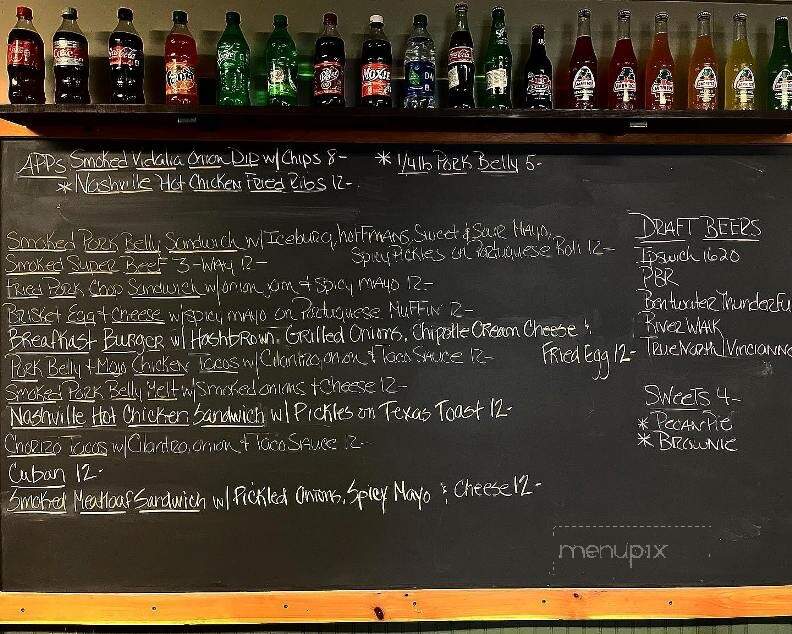 Coca-Cola
Fanta
Moxie
APPs Smoked Vidalia Onion Dip w/Chips 8-
* 1/4 lb Pork Belly 5-
* Nashville Hot Chicken Fried Ribs 12-
Smoked Pork Belly Sandwich w/Iceburg, hoffmans, Sweet & Sour Mayo,
Spicy Pickles on Portuguese Roll 12-
Smoked Super Beef 3-Way 12-
Fried Pork Chop Sandwich w/onion, jam & Spicy mayo 12-
Brisket Egg + Cheese w/spicy mayo on Portuguese Muffin 12-
Breakfast Burger w/ Hashbrown, Grilled Onions, Chipotle Cream Cheese &
Fried Egg 12-
Pork Belly + Mojo Chicken Tacos w/Cilantro, onion & Taco Sauce 12-
Smoked Pork Belly Melt w/Smoked onions + Cheese 12-
Nashville Hot Chicken Sandwich w/ Pickles on Texas Toast 12-
Chorizo Tacos w/Cilantro, onion & Taco Sauce 12-
Cuban 12-
Smoked Meatloaf Sandwich w/ Pickled Onions, Spicy Mayo & Cheese 12-
Draft Beers
Ipswich 1620
PBR
Bentwater Thunderfu
River Walk
True North Vincianno
Sweets 4-
* Pecan Pie
* Brownie
menupix